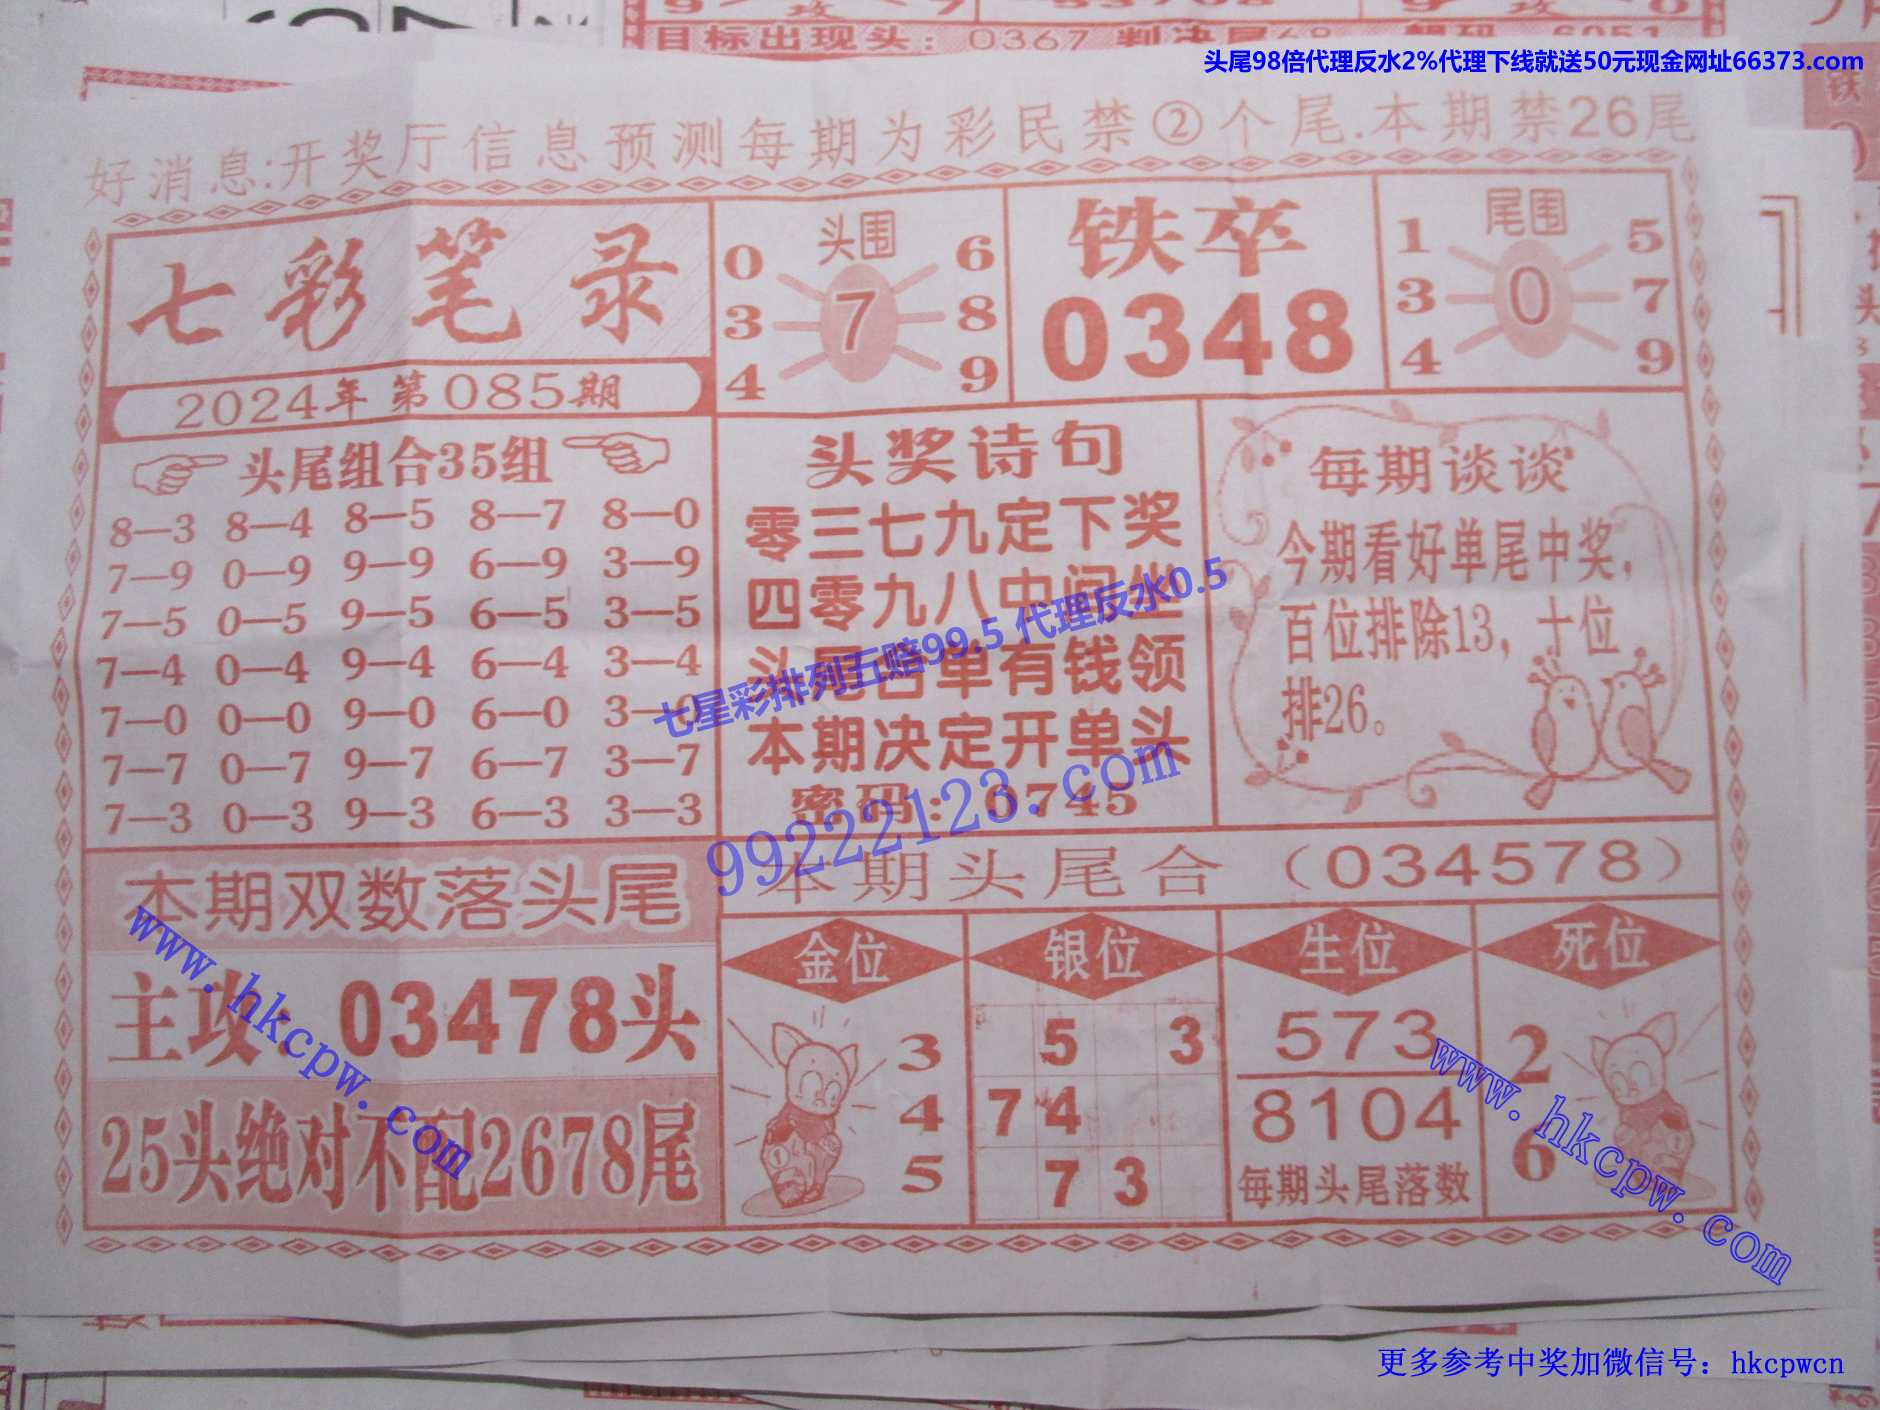 目标出现头：0367
头尾98倍代理反水2%代理下线就送50元现金网址66373.com
好消息:开奖厅信息预测每期为彩民禁②个尾.本期禁26尾
七彩笔录
2024年 第085期
头围
0 6
3 7 8
4 9
铁卒
0348
尾围
1 5
3 0 7
4 9
头尾组合35组
8—3 8—4 8—5 8—7 8—0
7—9 0—9 9—9 6—9 3—9
7—5 0—5 9—5 6—5 3—5
7—4 0—4 9—4 6—4 3—4
7—0 0—0 9—0 6—0 3—0
7—7 0—7 9—7 6—7 3—7
7—3 0—3 9—3 6—3 3—3
头奖诗句
零三七九定下奖
四零九八中间坐
头尾合单有钱领
本期决定开单头
密码: 6745
每期谈谈
今期看好单尾中奖，
百位排除13，十位
排26。
七星彩排列五赔99.5 代理反水0.5
99222123.com
本期双数落头尾
主攻：03478头
25头绝对不配2678尾
本期头尾合（034578）
金位
3
4
5
银位
5 3
7 4
7 3
生位
573
8104
每期头尾落数
死位
2
6
www.hkcpw.com
www.hkcpw.com
更多参考中奖加微信号：hkcpwcn